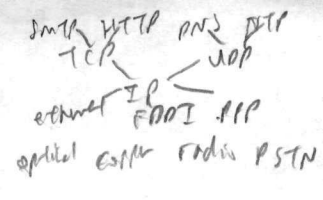 SMTP HTTP DNS NTP
TCP UDP
IP
ethernet FDDI PPP
optical copper radio PSTN